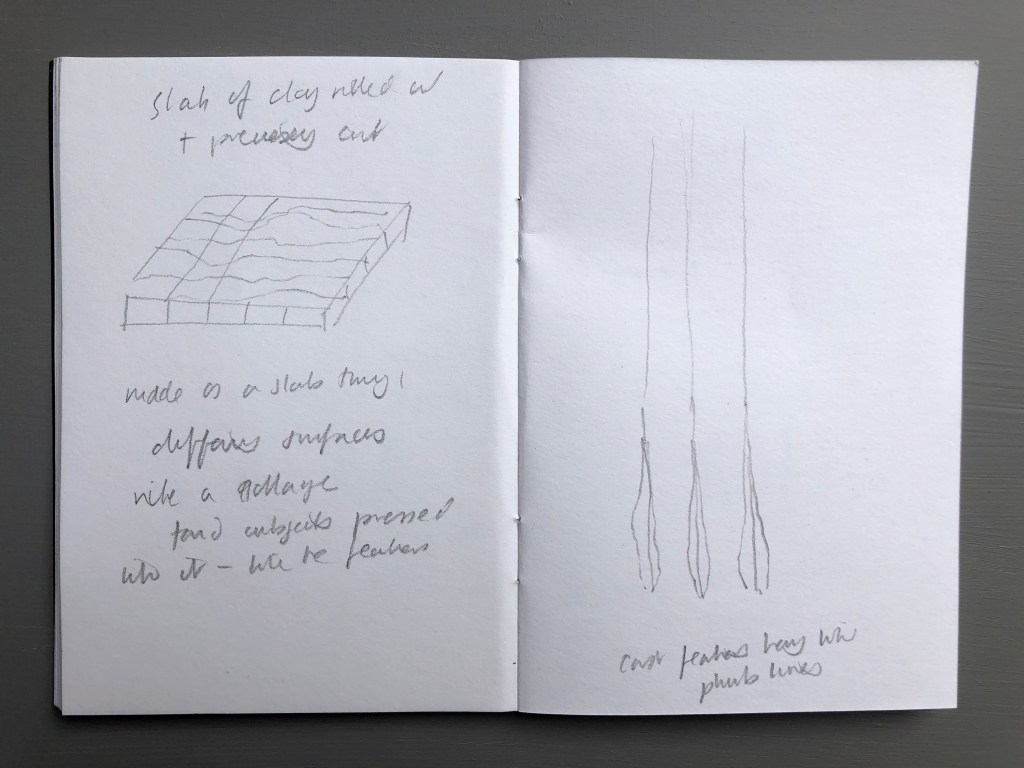 Slab of clay rolled out
+ precisely cut
made as a slab
surfaces
like a collage
found objects pressed
into it - like the feathers
cast feathers hang like
plumb lines